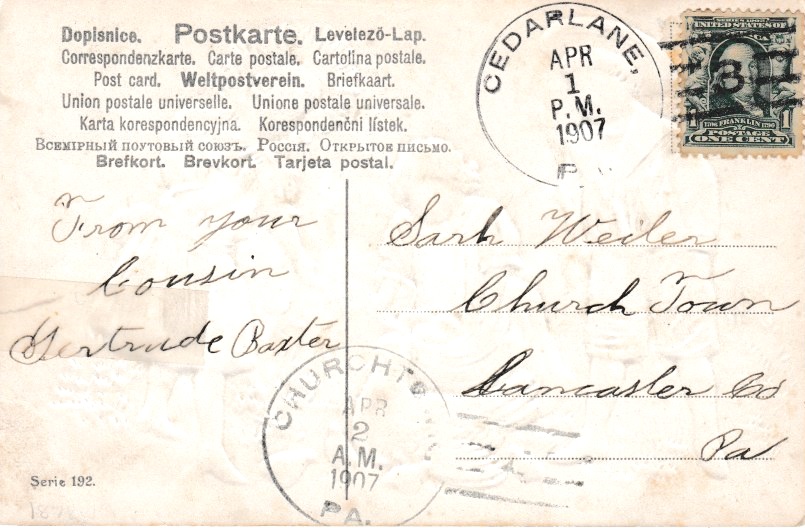 Dopisnice. Postkarte. Levelezö-Lap.
Correspondenzkarte. Carte postale. Cartolina postale.
Post card. Weltpostverein. Briefkaart.
Union postale universelle. Unione postale universale.
Karta korespondencyjna. Korespondenční lístek.
Всемірный почтовый союзъ. Россія. Открытое письмо.
Brefkort. Brevkort. Tarjeta postal.
CEDARLANE,
APR
1
P.M.
1907
SERIES 1902
UNITED STATES OF
3
FRANKLIN
1 POSTAGE 1
ONE CENT
From your
Cousin
Gertrude Baxter
Sarh Weiler
Church Town
Lancaster Co
Pa
CHURCHTO
APR
2
A.M.
1907
PA.
Serie 192.